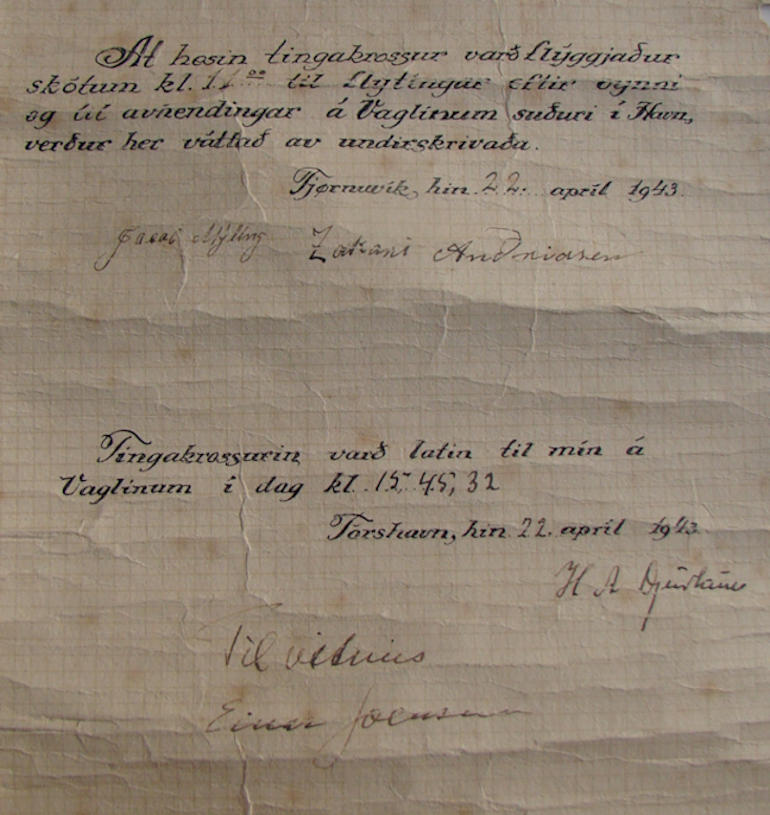 At hesin tingakrossur varð flýggjaður
skótum kl. 11 00 til flytingar eftir oynni
og út avhendingar á Vaglinum suðuri í Havn,
verður her váttað av undirskrivaða.
Tjørnuvík, hin 22. apríl 1943.
Jacob Mýling Zakaris Andreasen
Tingakrossurin varð latin til mín á
Vaglinum í dag kl. 15, 45, 32
Tórshavn, hin 22. apríl 1943.
H A Djurhuus
Til vitnis
Einar Joensen